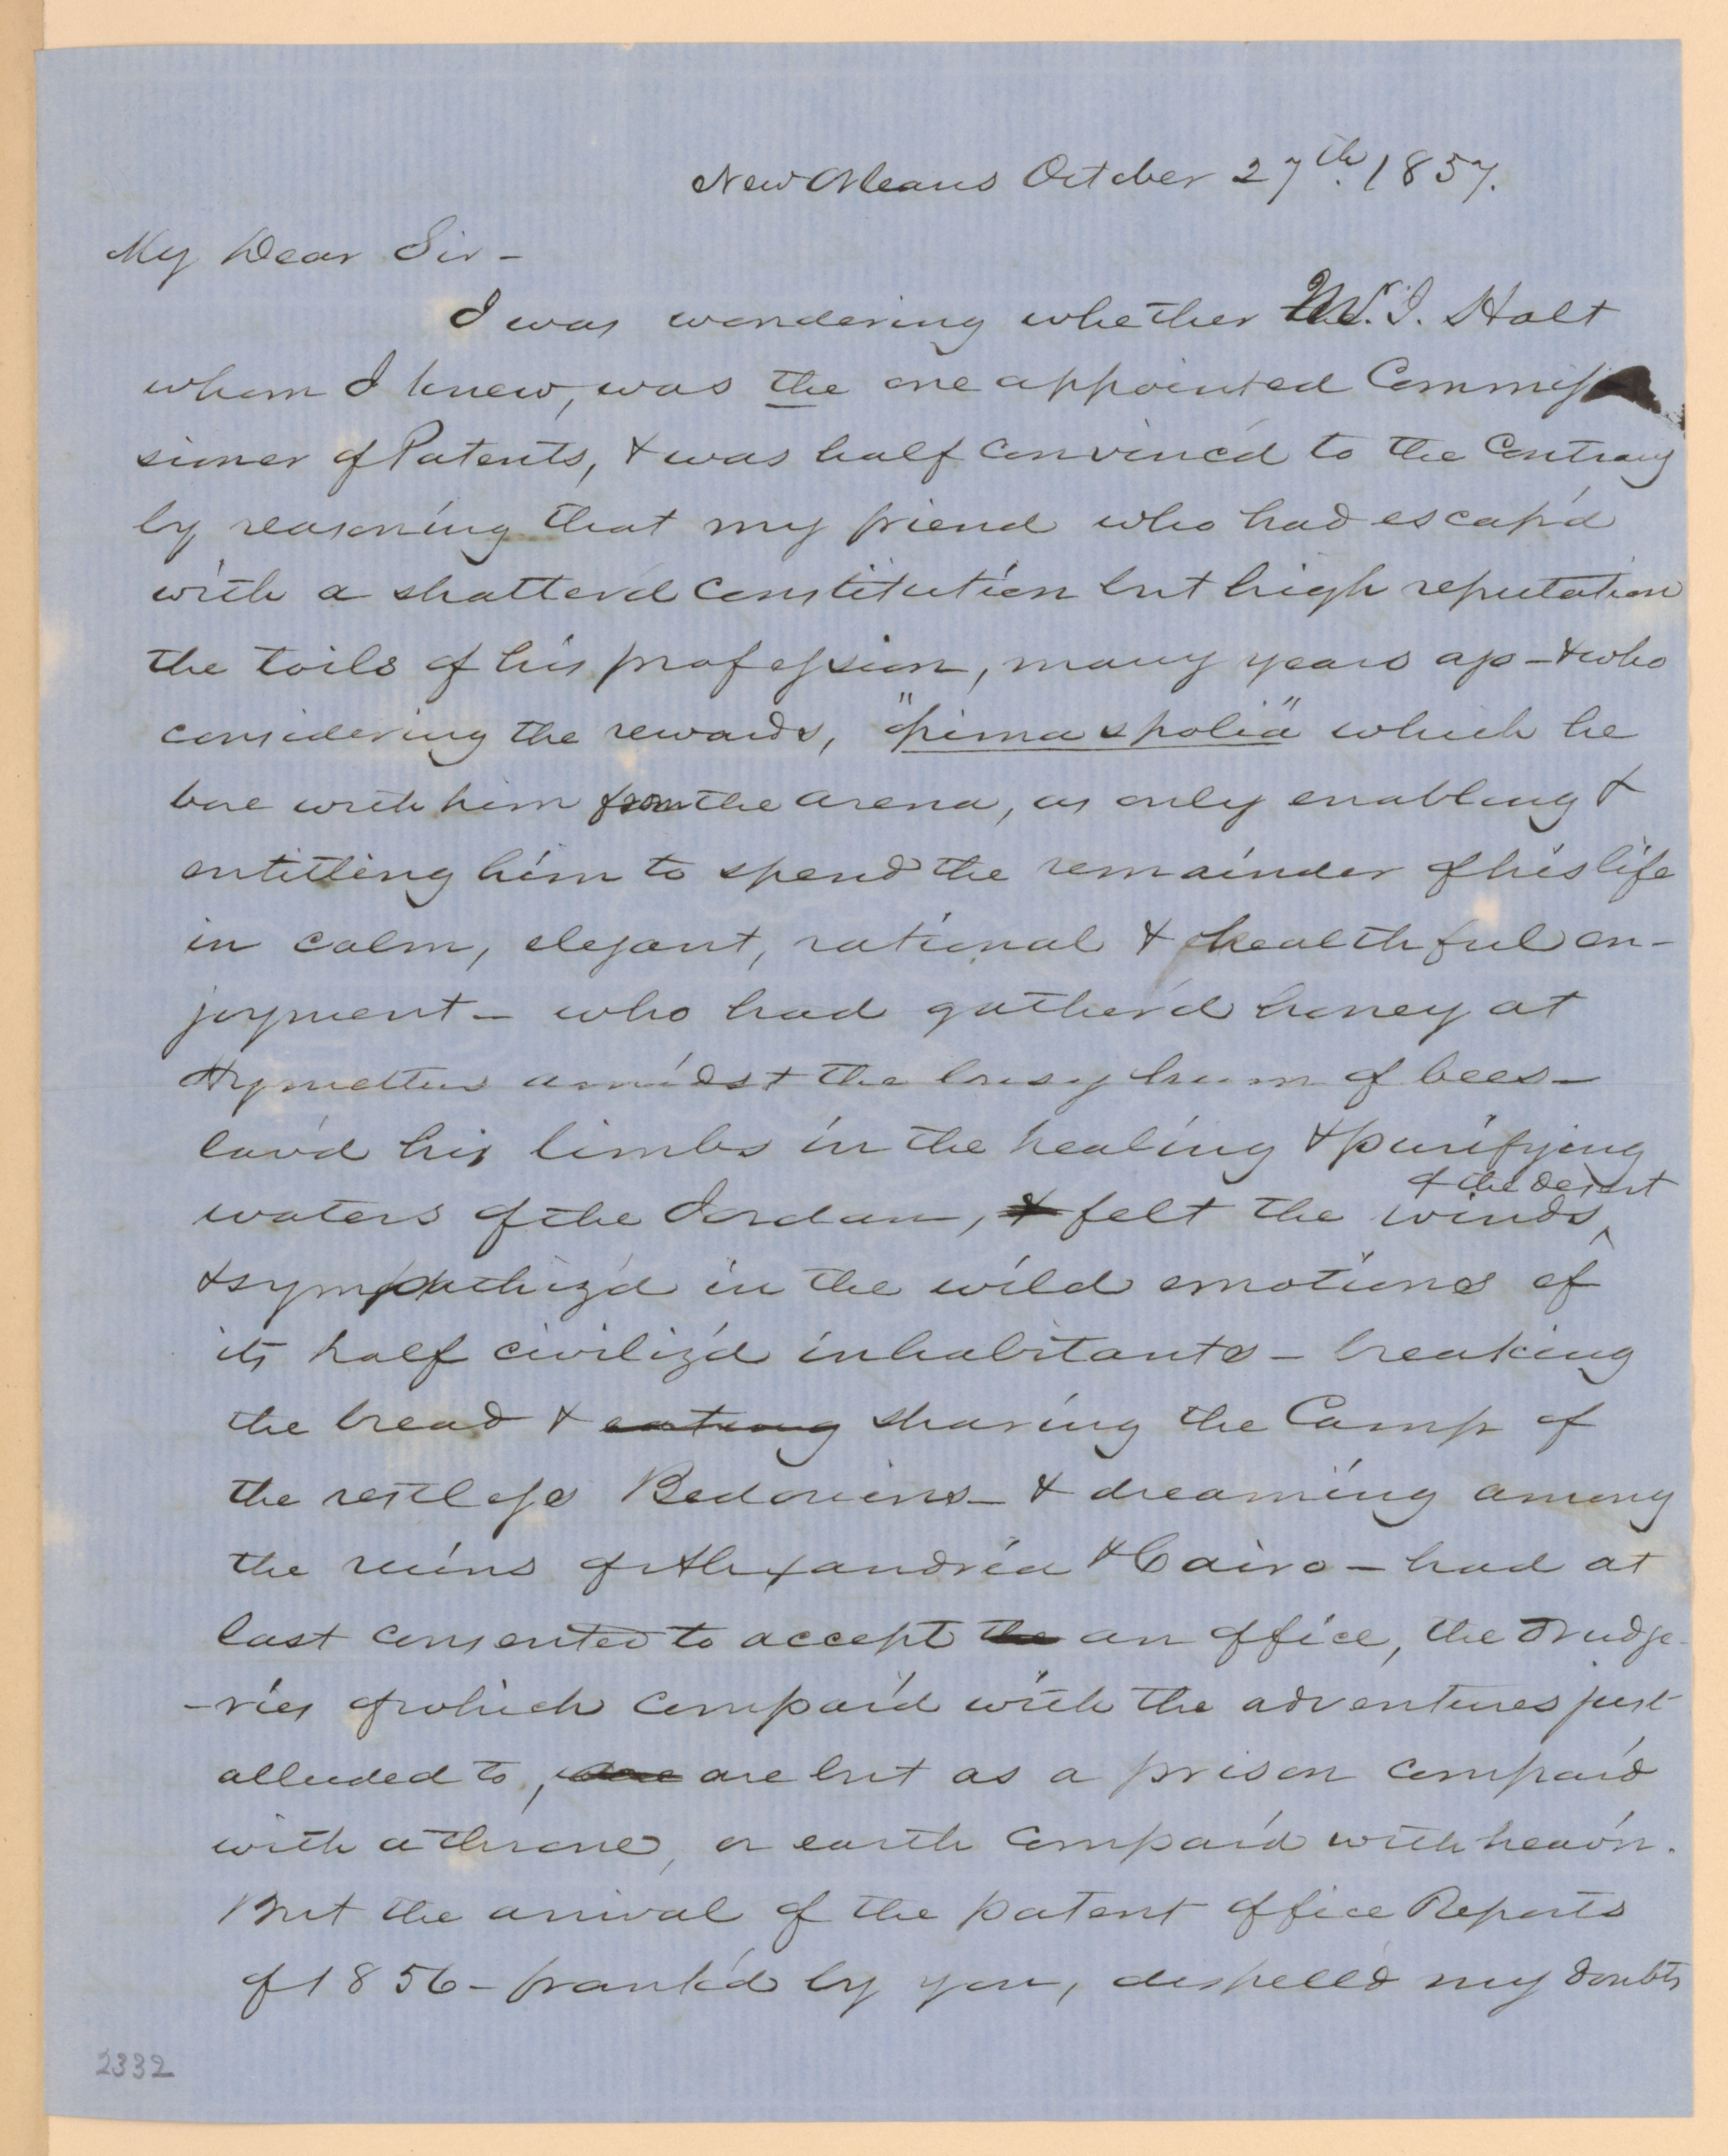 New Orleans October 27th. 1857.
My Dear Sir -
I was wondering whether Mr. J. Holt
whom I knew, was the one appointed Commis
sioner of Patents, & was half convinc'd to the Contrary
by reasoning that my friend who had escap'd
with a shatter'd constitution but high reputation
the toils of his profession, many years ago - & who
considering the rewards, "opima spolia" which he
bore with him from the arena, as only enabling &
entitling him to spend the remainder of his life
in calm, elegant, rational & healthful en-
joyment - who had gather'd honey at
Hymettus amidst the busy hum of bees -
lav'd his limbs in the healing & purifying
of the desert
waters of the Jordan, & felt the winds ^
& sympathiz'd in the wild emotions of
its half civiliz'd inhabitants - breaking
the bread & eating sharing the Camp of
the restless Bedouins - & dreaming among
the ruins of Alexandria & Cairo - had at
last consented to accept the an office, the Drudge-
-ries of which compar'd with the adventures just
alluded to, were are but as a prison compar'd
with a throne, or earth compar'd with heav'n.
But the arrival of the patent office Reports
of 1856 - frank'd by you, dispell'd my doubts
2332